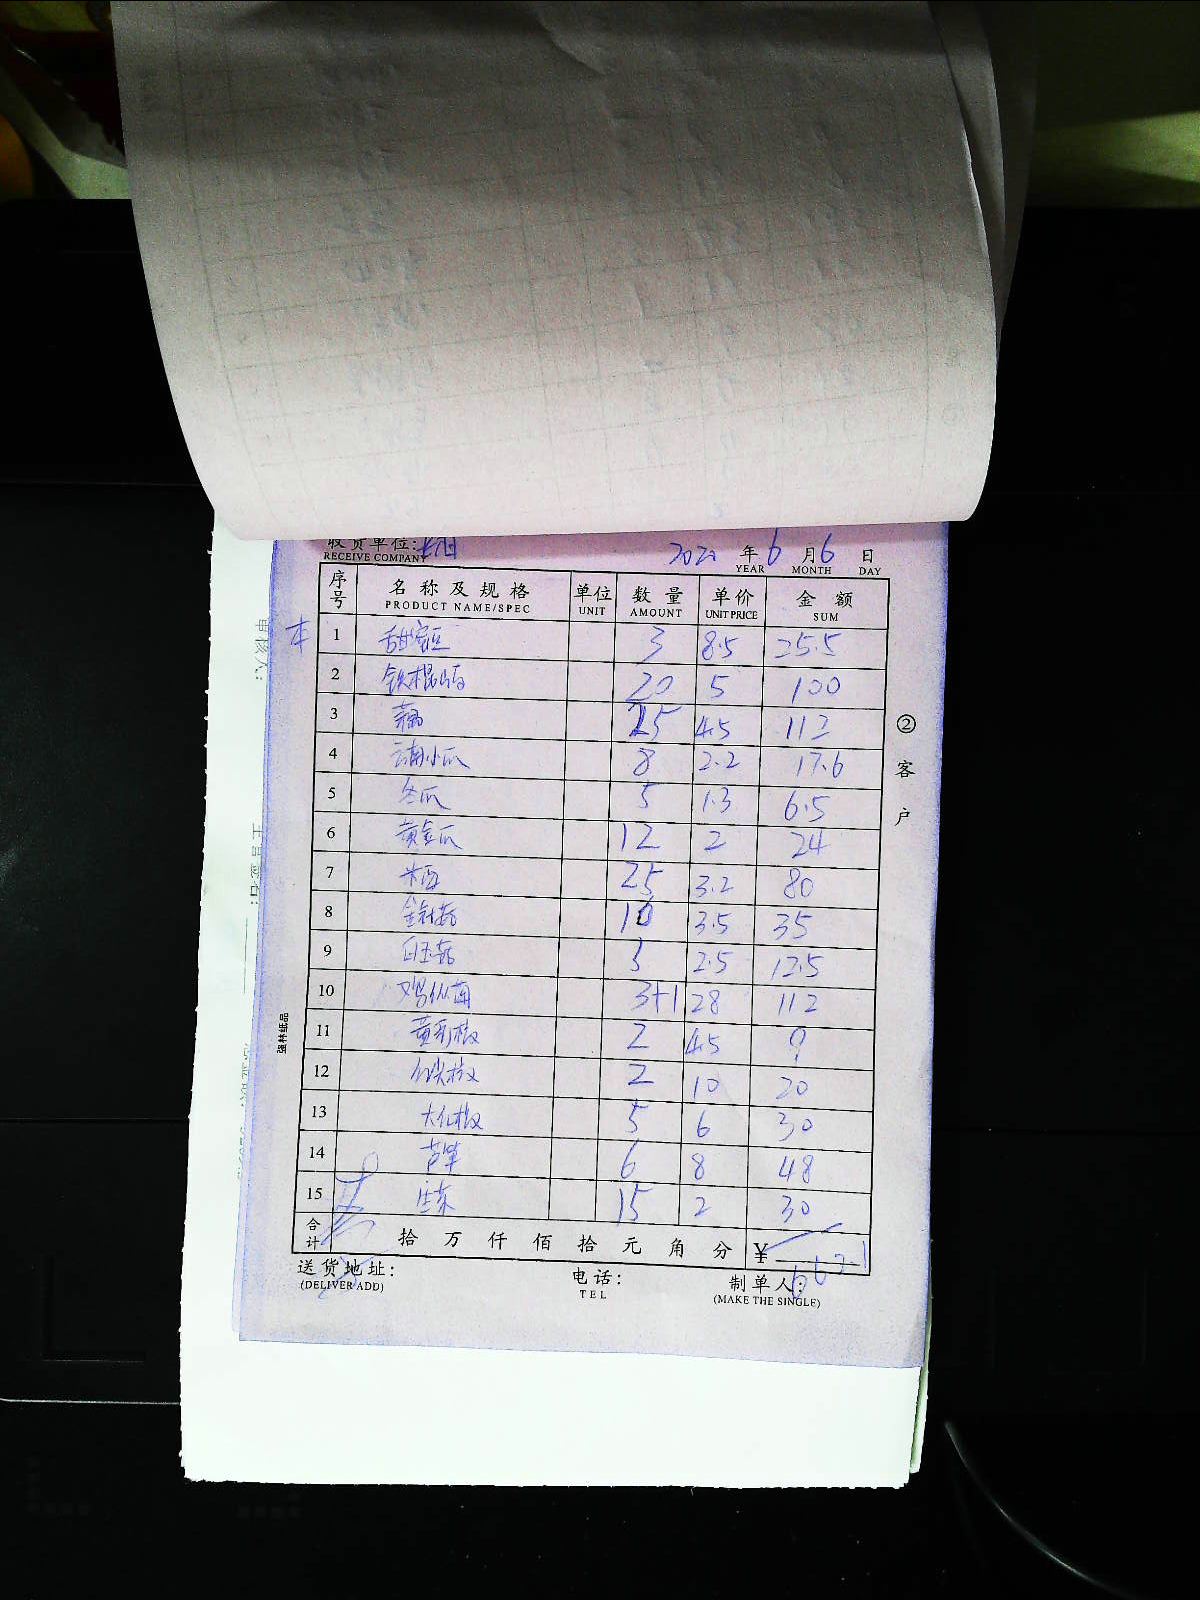 收货单位:
RECEIVE COMPANY
2020 年 6 月 6 日
YEAR MONTH DAY
序号 名称及规格 单位 数量 单价 金额
PRODUCT NAME/SPEC UNIT AMOUNT UNIT PRICE SUM
本 1 甜蜜豆 3 8.5 25.5
2 铁棍山药 20 5 100
3 藕 25 4.5 112
4 云南小瓜 8 2.2 17.6
5 冬瓜 5 1.3 6.5
6 黄金瓜 12 2 24
7 25 3.2 80
8 金针菇 10 3.5 35
9 白玉菇 2.5 12.5
10 鸡枞菌 3+1 28 112
11 黄彩椒 2 4.5 9
12 尖椒 2 10 20
13 6 30
14 芦笋 6 8 48
15 15 2 30
合计 拾 万 仟 佰 拾 元 角 分 ¥
送货地址: 电话: 制单人:
(DELIVER ADD) TEL (MAKE THE SINGLE)
②客户
强林纸品
审核人: